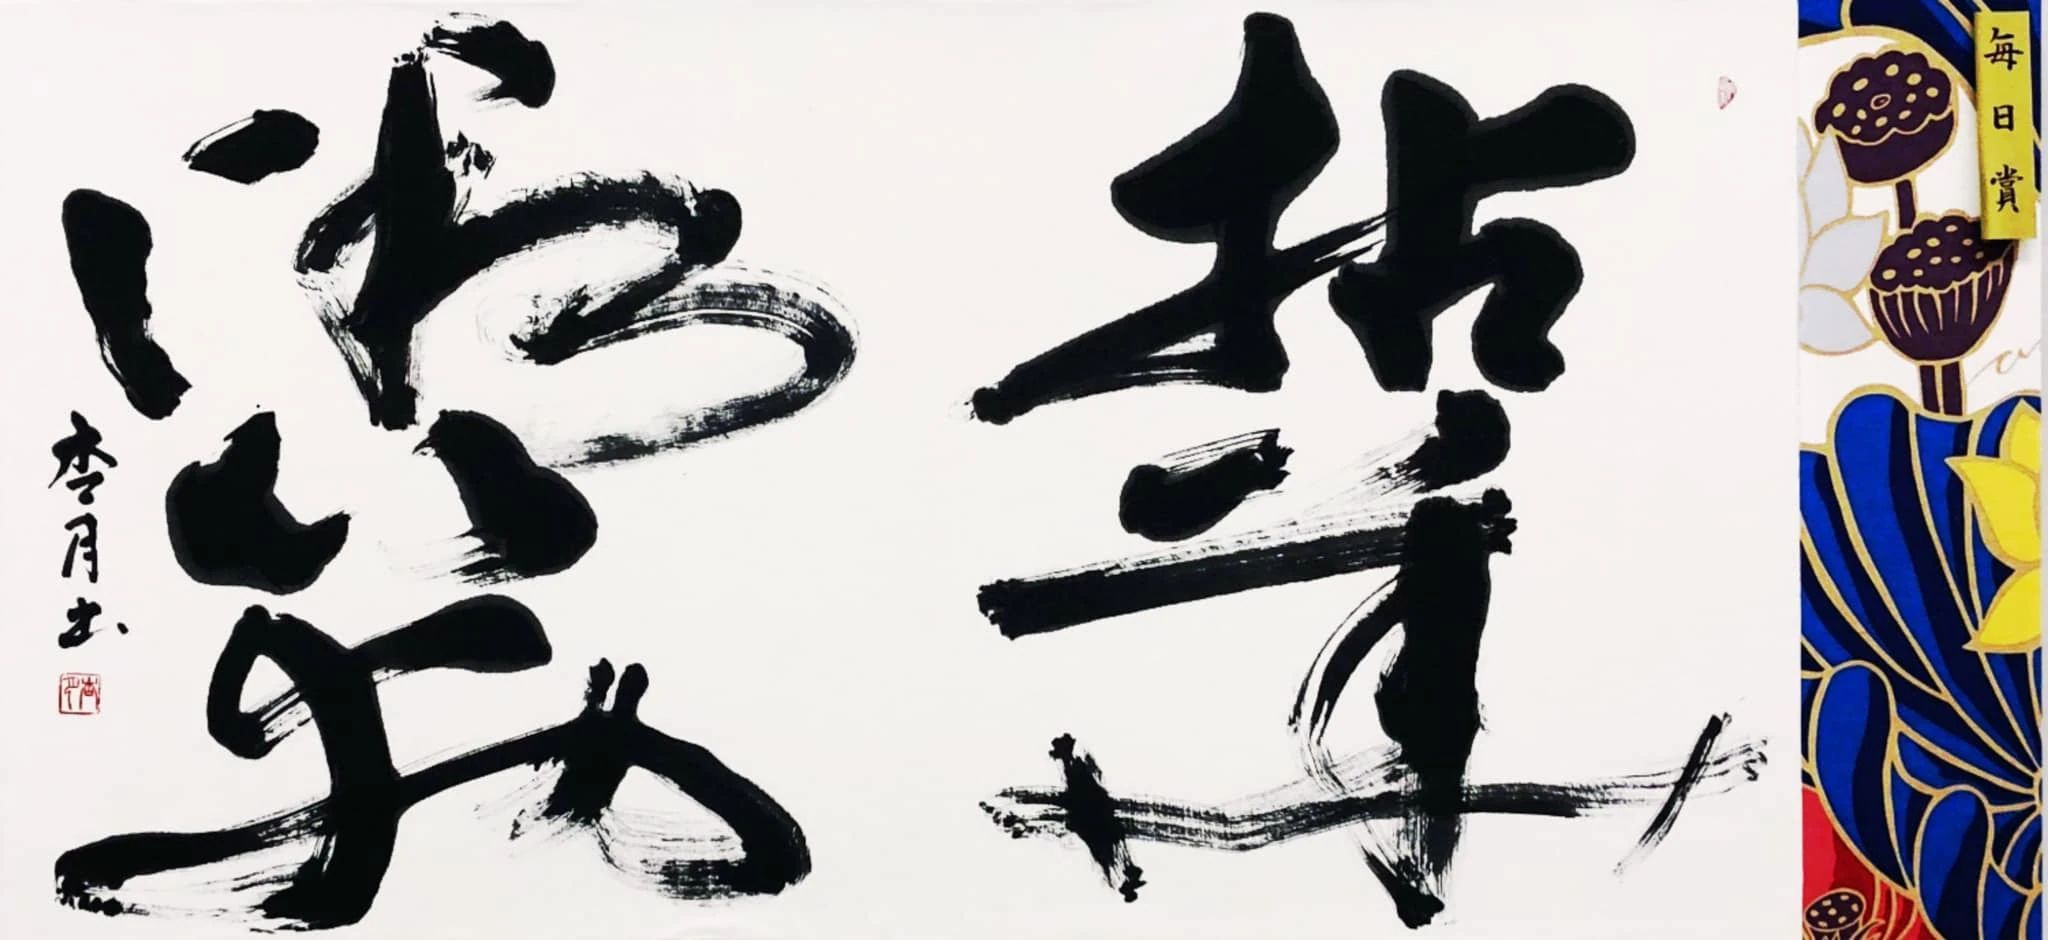 每日賞
拈華
微笑
杏月书